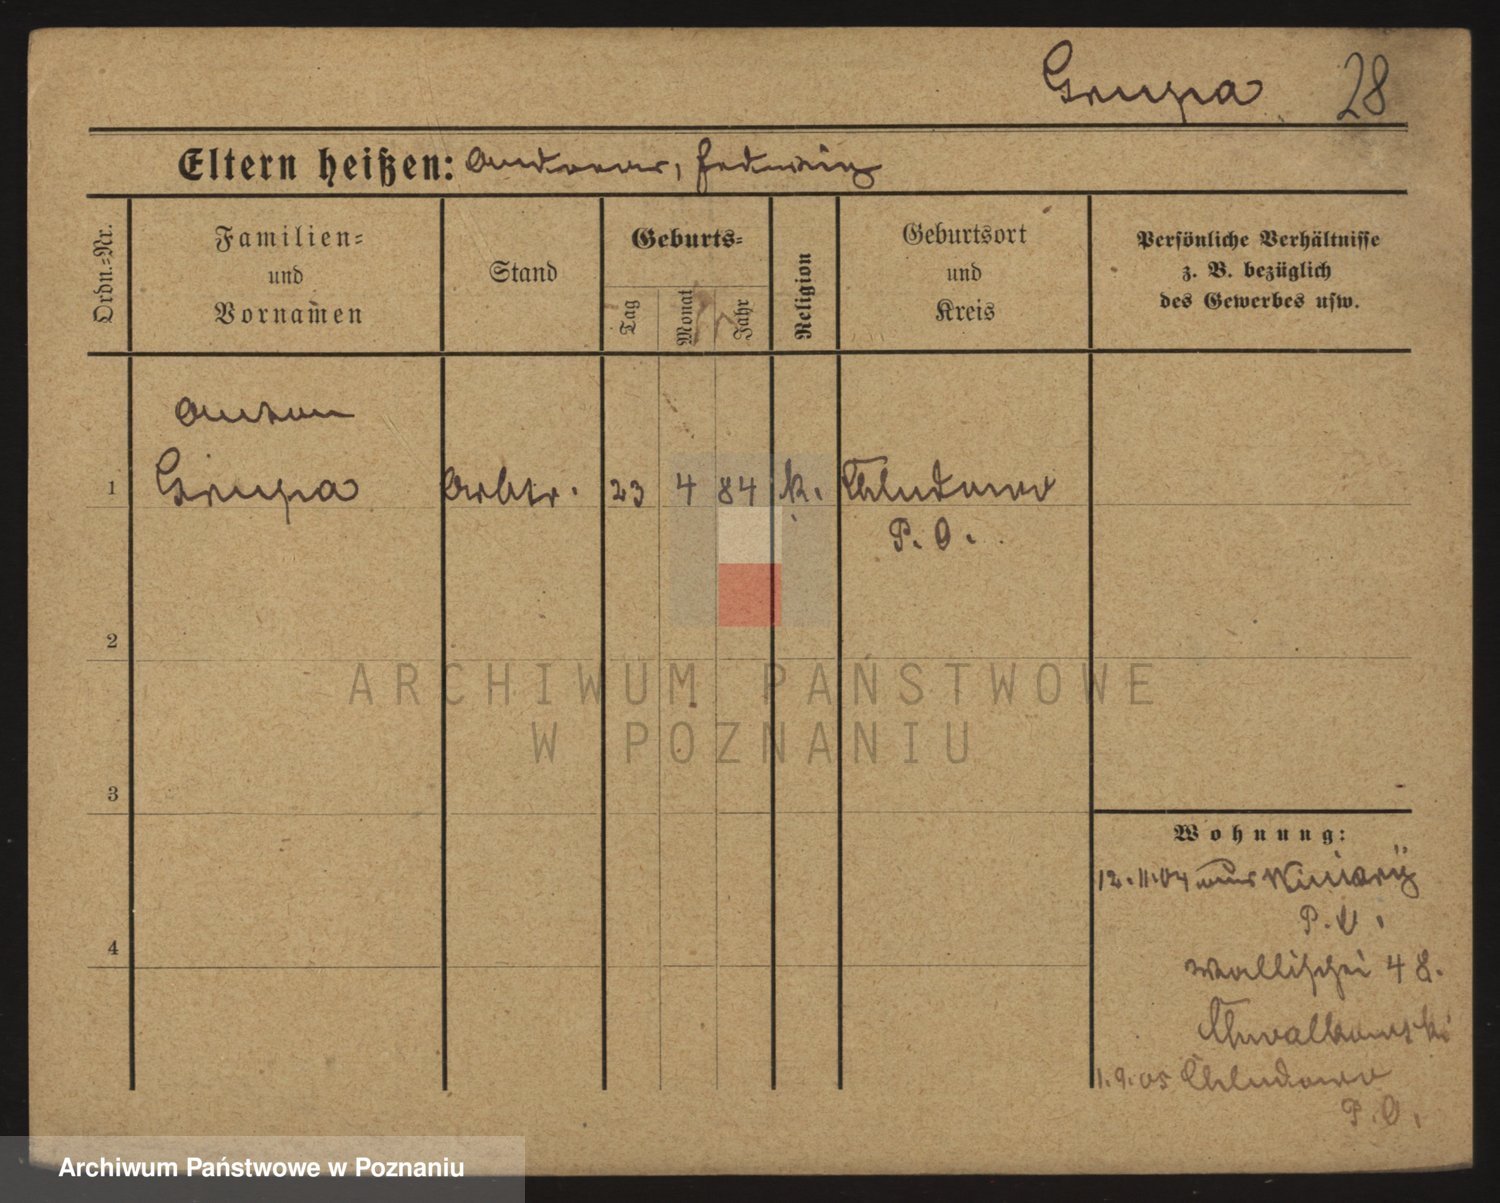 Grupa 28
Eltern heißen: Andreas, Hedwig
Ordn.-Nr.
Familien-
und
Vornamen
Stand
Geburts-
Tag
Monat
Jahr
Religion
Geburtsort
und
Kreis
Persönliche Verhältnisse
z. B. bezüglich
des Gewerbes usw.
Anton
1 Grupa Arbtr. 23 4 84 k. Chludowo
P. O.
2
3
4
Wohnung:
12.11.04 aus
Wallischei 48.
Chwalkowski
1.9.05 Chludowo
P. O.
ARCHIWUM PAŃSTWOWE
W POZNANIU
Archiwum Państwowe w Poznaniu